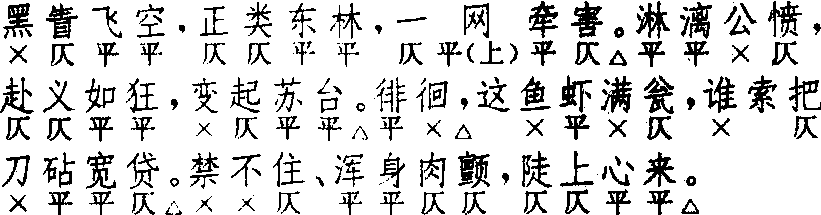 黑眚飞空，正类东林，一网牵害。淋漓公愤，
× 仄 平 平 仄 仄 平 平 仄 平(上) 平 仄 △ 平 平 × 仄
赴义如狂，变起苏台。徘徊，这鱼虾满瓮，谁索把
仄 仄 平 平 × 仄 平 平 △ 平 × △ × 平 × 仄 × 仄
刀砧宽贷。禁不住、浑身肉颤，陡上心来。
× 平 平 仄 △ × × 仄 平 平 仄 仄 仄 仄 平 平 △